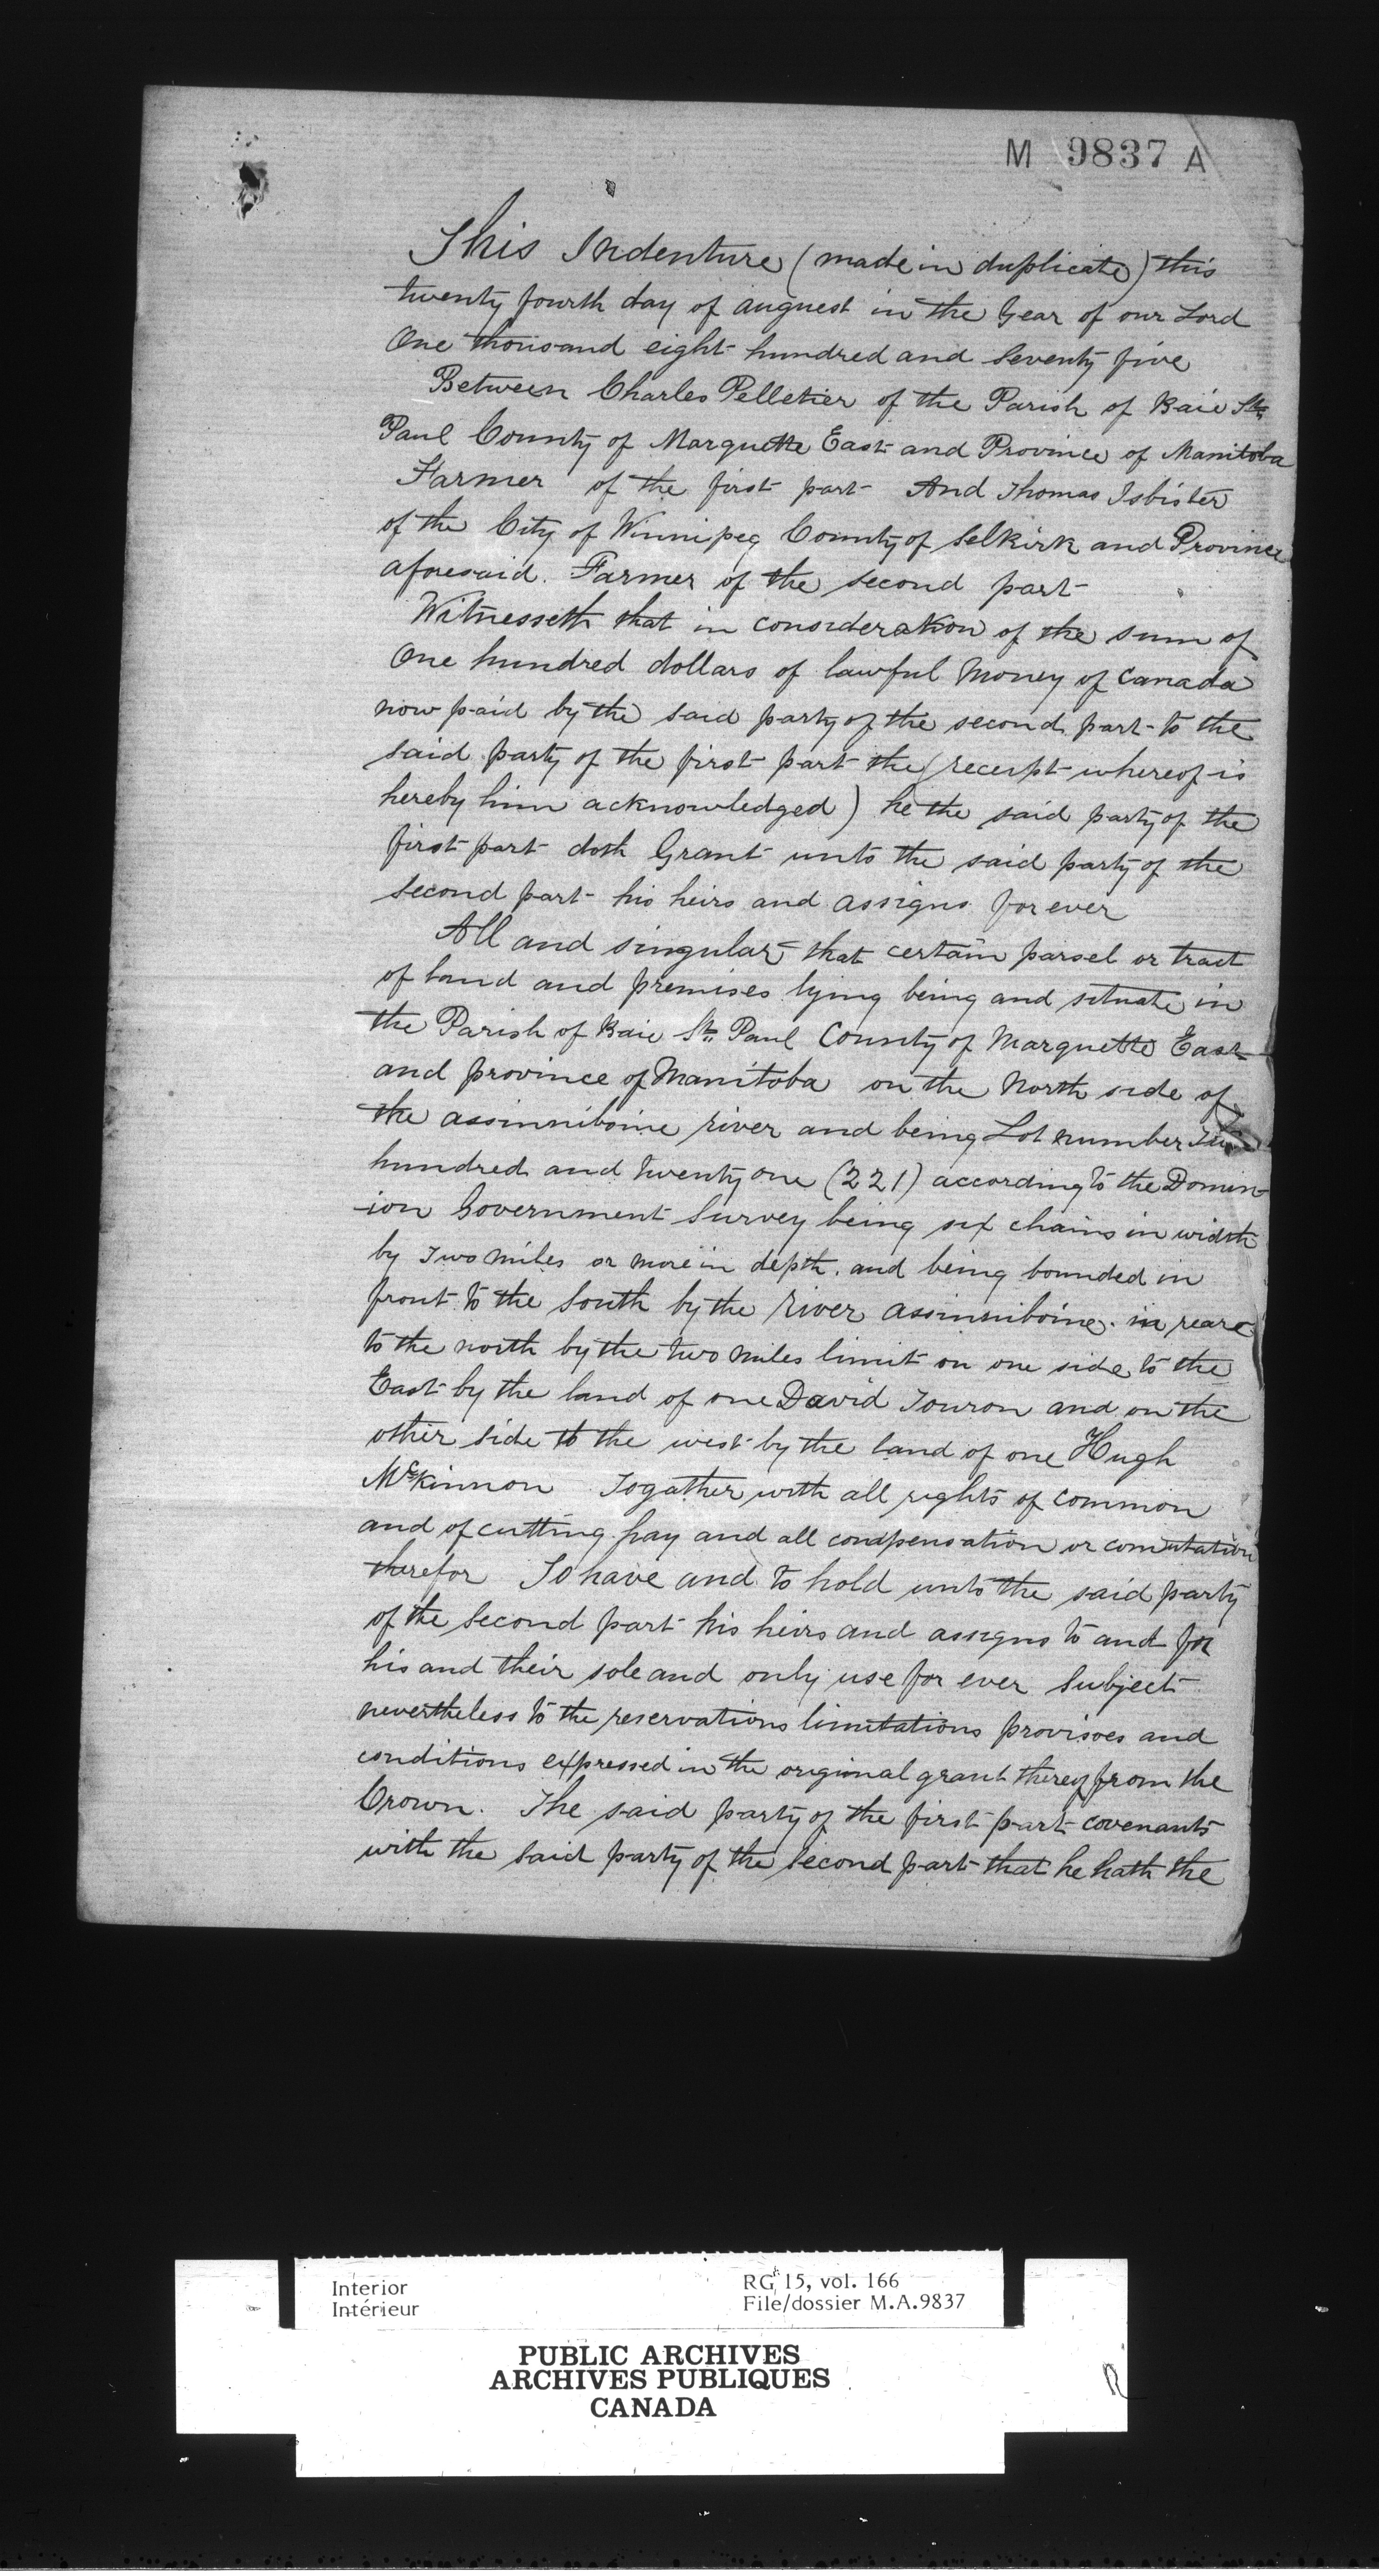 M 9837 A
This Indenture (made in duplicate) this
twenty fourth day of auguest in the Year of our Lord
One thousand eight hundred and Seventy five
Between Charles Pelletier of the Parish of Baie St.
Paul County of Marquette East and Province of Manitoba
Farmer of the first part And Thomas Isbister
of the City of Winnipeg County of Selkirk and Province
aforesaid. Farmer of the second part
Witnesseth that in consideration of the sum of
One hundred dollars of lawful Money of Canada
now paid by the said party of the second part to the
said party of the first part the (receipt whereof is
hereby him acknowledged) he the said party of the
first part doth Grant unto the said party of the
Second part his heirs and assigns for ever
All and singular that certain parsel or tract
of land and premises lying being and situate in
the Parish of Baie St. Paul County of Marquette East
and province of Manitoba on the North side of
the assinniboine river and being Lot number Two
hundred and twenty one (221) according to the Domin-
-ion Government Survey being six chains in width
by Two Miles or more in depth. and being bounded in
front to the South by the River assinniboine. in reare
to the north by the two Miles limit on one side to the
East by the land of one David Touron and on the
other side to the west by the land of one Hugh
McKinnon Togather with all rights of common
and of cutting hay and all compensation or comutation
therefor To have and to hold unto the said party
of the Second part his heirs and assigns to and for
his and their sole and only use for ever Subject
nevertheless to the reservations limitations provisoes and
conditions expressed in the origional grant thereof from the
Crown. The said party of the first part covenants
with the said party of the Second part that he hath the
Interior
Intérieur
RG 15, vol. 166
File/dossier M.A.9837
PUBLIC ARCHIVES
ARCHIVES PUBLIQUES
CANADA